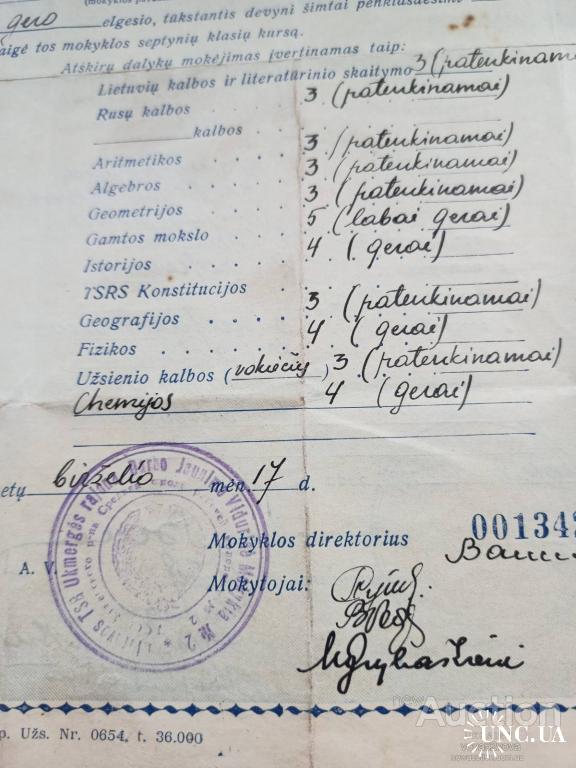 gero elgesio, tūkstantis devyni šimtai penkiasdešimt
baigė tos mokyklos septynių klasių kursą.
Atskirų dalykų mokėjimas įvertinamas taip:
Lietuvių kalbos ir literatūrinio skaitymo 3 (patenkinamai
Rusų kalbos . . . . 3 (patenkinamai)
kalbos
Aritmetikos . . . . 3 (patenkinamai)
Algebros . . . . 3 (patenkinamai)
Geometrijos . . . . 3 (patenkinamai)
Gamtos mokslo . . . . 5 (labai gerai)
Istorijos . . . . 4 (gerai)
TSRS Konstitucijos . . .
Geografijos . . . . 3 (patenkinamai)
Fizikos . . . . 4 (gerai)
Užsienio kalbos (vokiečių) 3 (patenkinamai)
Chemijos 4 (gerai)
metų birželio mėn. 17 d.
001342
Mokyklos direktorius
A. V.
Mokytojai:
Lietuvos TSR Ukmergės rajono Darbo Jaunimo Vidurinė Mokykla № 2
Auction
UNC.UA
p. Užs. Nr. 0654, t. 36.000